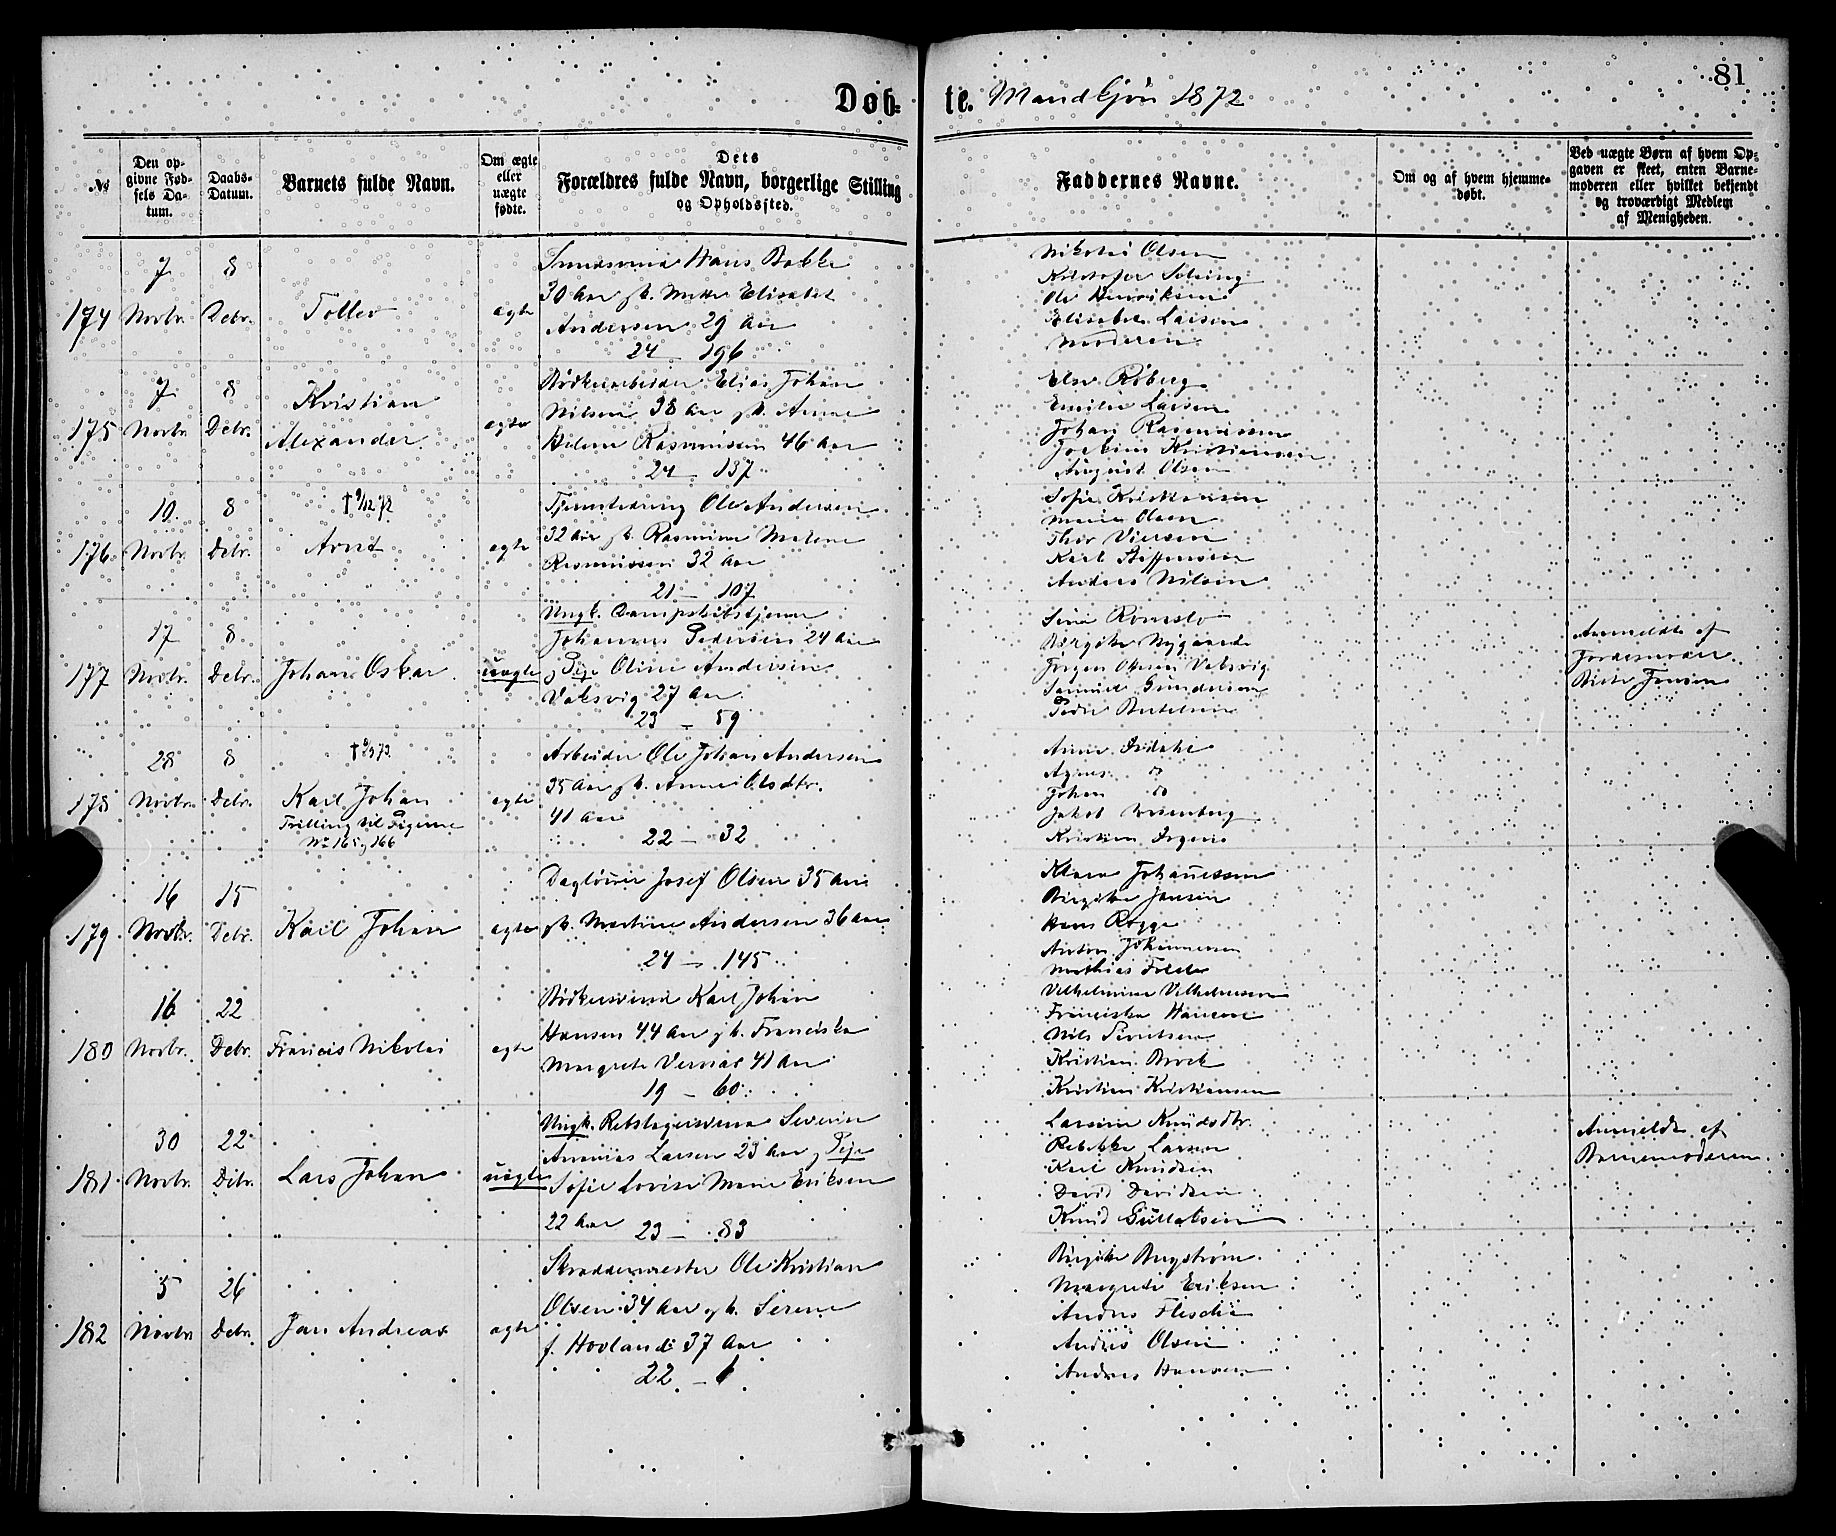 81
Døbte. Mandkjøn 1872
№
Den opgivne Fødsels Datum.
Daabs-Datum.
Barnets fulde Navn.
Om ægte eller uægte fødte.
Dets Forældres fulde Navn, borgerlige Stilling og Opholdssted.
Faddernes Navne.
Om og af hvem hjemmedøbt.
Ved uægte Børn af hvem Opgaven er skeet, enten Barnemoderen eller hvilket bekjendt og troværdigt Medlem af Menigheden.
174
7 Novbr.
8 Debr.
Tollev
ægte
Hans Bakke
30 Aar Elisabet
Andersen 29 Aar
24 – 196
Nikolai Olsen
Ole Henriksen
Larsen
Moderen
175
7 Novbr.
8 Debr.
Kristian
Alexander
ægte
Bødkerarbeider Elias Johan
Nilsen 38 Aar gk. Anne
Rasmussen 46 Aar
24 – 137
Roberg
Emilie Larsen
Johan Rasmussen
Joakim Kristiansen
August Olsen
176
10 Novbr.
8 Debr.
† 9/12 72
Arnt
ægte
Ole Andersen
32 Aar gk. Rasmine Malene
Rasmussen 32 Aar
21 – 107
Sofie Kristensen
Marie Olsen
Karl Steffensen
Anders Nilsen
177
17 Novbr.
8 Debr.
Johan Oskar
uægte
Ungk. Dampskibstjener
Johannes Pedersen 24 Aar
g Pige Oline Andersen
Vaksvig 27 Aar
23 – 59
Nygaard
Jørgen Olsen Vaksvig
Samuel Gundersen
Peder Bertelsen
Anmeldt af
Jordemoder
Jensen
178
28 Novbr.
8 Debr.
Karl Johan
Trilling til Pigerne
No 165 g 166
ægte
Arbeider Ole Johan Andersen
35 Aar gk. Anne Olsdtr.
41 Aar
22 – 32
Agnes do
Johan do
Jakob
Kristian
179
16 Novbr.
15 Debr.
Karl Johan
ægte
Dagløner Josef Olsen 35 Aar
gk. Martine Andersen 36 Aar
24 – 145
Klara Johannessen
Birgitte Jansen
Hans Rogge
Anton Johannessen
Mathias
180
16 Novbr.
22 Debr.
Francis Nikolai
ægte
Bødkersvend Karl Johan
Hansen 44 Aar gk. Franciska
Margrete 41 Aar
19 – 60
Vilhelmine Vilhelmsen
Franciska Hansen
Nils Sivertsen
Kristian Brock
Kristian Kristiansen
181
30 Novbr.
22 Debr.
Lars Johan
uægte
Ungk. Rebslagersvend Severin
Ananias Larsen 23 Aar g Pige
Sofie Lovise Marie Eriksen
22 Aar 23 – 83
Larsine Knudsdtr.
Rebekka Larsen
Karl Knudsen
David Davidsen
Knud Gullaksen
Anmeldt af
Barnemoderen.
182
5 Novbr.
26 Debr.
Jan Andreas
ægte
Skræddermester Ole Kristian
Olsen 34 Aar gk. Serene
f. Hovland 37 Aar
22 – 1
Birgitte Bergstrøm
Margrete Eriksen
Anders
Anders Olsen
Anders Hansen